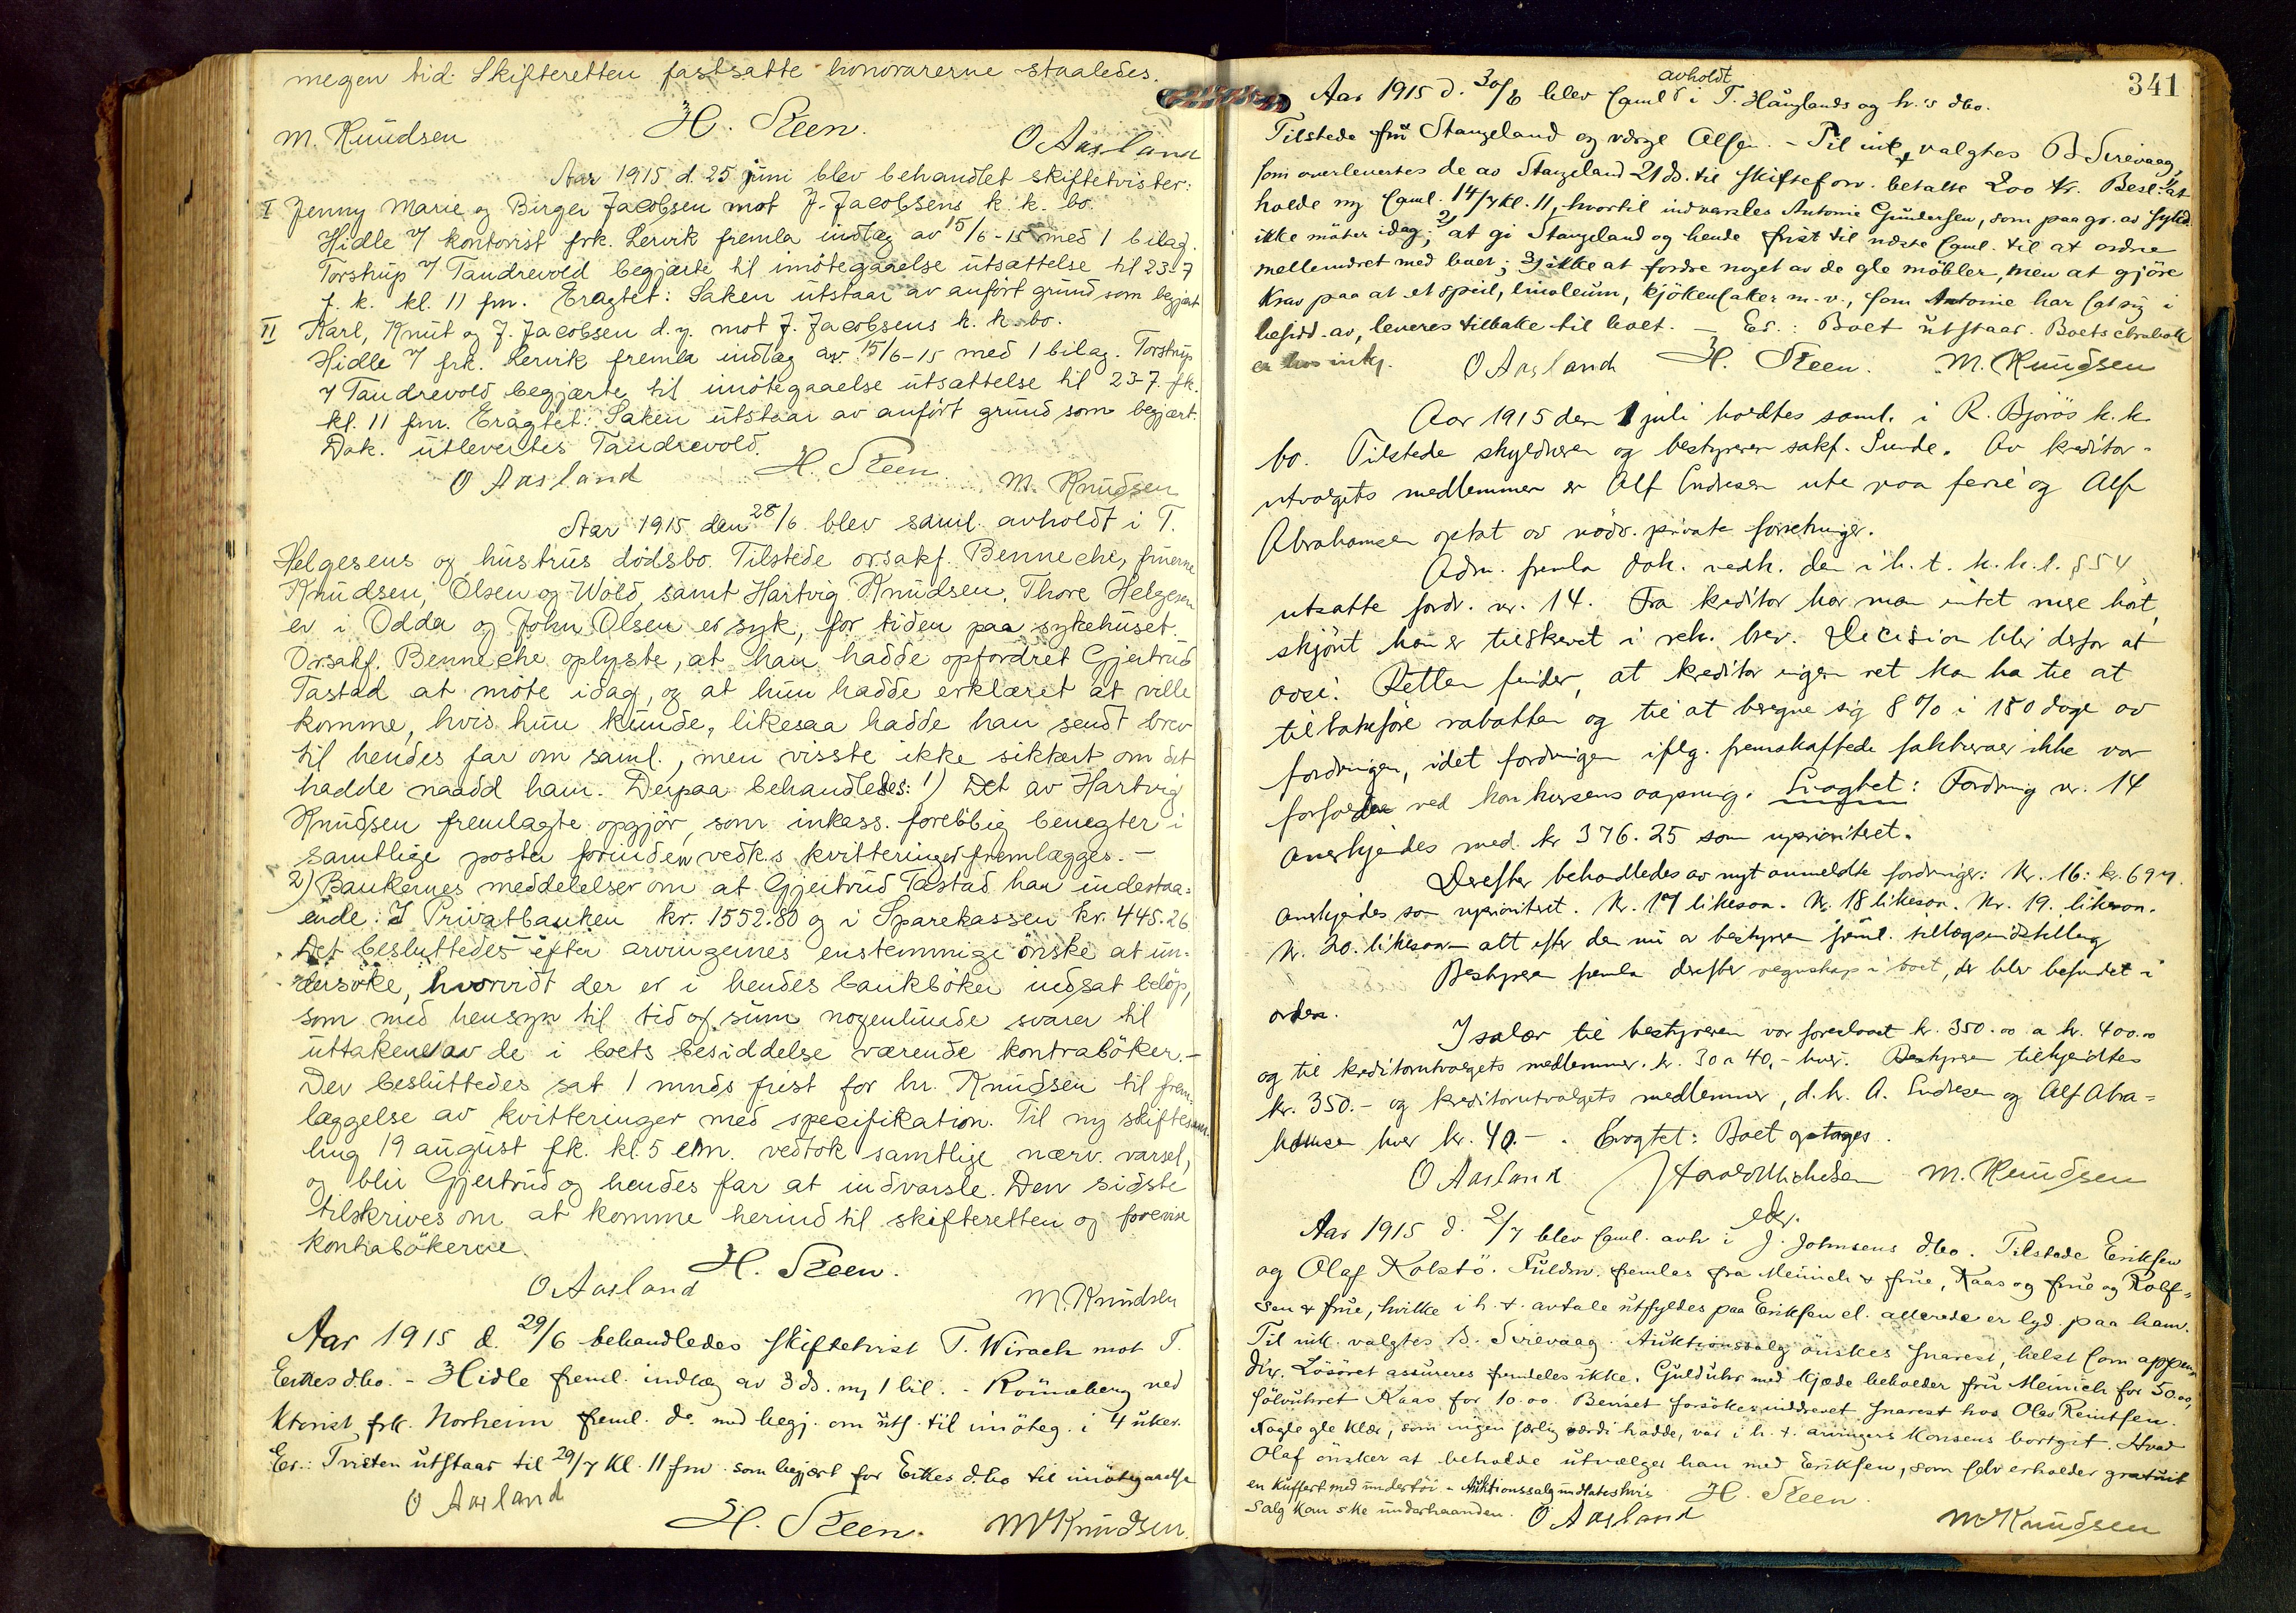 megen tid. Skifteretten fastsatte honorarerne staaledes.
M. Knudsen H. Steen. O Aasland
Aar 1915 d. 25 juni blev behandlet skiftetvister:
I Jenny Marie og Birger Jacobsen mot J. Jacobsens k. k. bo.
Hidle v/ kontorist frk. Lervik fremla indlæg av 15/6-15 med 1 bilag.
Torstrup v/ Tandrevold begjærte til imötegaaelse utsættelse til 23-7
f. k. kl. 11 fm. Eragtet: Saken utstaar av anfört grund som begjært
II Karl, Knut og J. Jacobsen d.y. mot J. Jacobsens k. k. bo.
Hidle v/ frk. Lervik fremla indlæg av 15/6-15 med 1 bilag. Torstrup
v/ Tandrevold begjærte til imötegaaelse utsattelse til 23-7. fk.
kl. 11 fm. Eragtet: Saken utstaar av anfört grund som begjært.
Dok. utlevertes Tandrevold.
O Aasland H. Steen M. Knudsen
Aar 1915 den 28/6 blev saml. avholdt i T.
Helgesens og hustrus dödsbo. Tilstede orsakf. Benneche, fruerne
Knudsen, Olsen og Wold samt Hartvig Knudsen. Thore Helgesen
er i Odda og John Olsen er syk, for tiden paa sykehuset.
Orsakf. Benneche oplyste, at han hadde opfordret Gjertrud
Tastad at möte idag, og at hun hadde erklæret at ville
komme, hvis hun kunde, likesaa hadde han sendt brev
til hendes far om saml., men visste ikke sikkert om det
hadde naadd ham. Derpaa behandledes: 1) Det av Hartvig
Knudsen fremlagte opgjör, som inkass. forebbig benegter i
samtlige poster forinden vedk.s kvitteringer fremlægges. —
2) Bankernes meddelelser om at Gjertrud Tastad har indestaa-
ende: I Privatbanken kr. 1552.80 og i Sparekassen kr. 445.26
Det besluttedes efter arvingernes enstemmige önske at un-
dersöke, hvorvidt der er i hendes bankböker indsat belöp,
som med hensyn til tid og sum nogenlunde svarer til
uttakene av de i boets besiddelse værende kontraböker. —
Der besluttedes sat 1 mnds frist for hr. Knudsen til frem-
læggelse av kvitteringer med spesifikation. Til ny skiftesam-
ling 19 august fk. kl. 5 em. vedtok samtlige nærv. varsel,
og blir Gjertrud og hendes far at indvarsle. Den sidste
tilskrives om at komme herind til skifteretten og forevise
kontrabökerne.
O Aasland H. Steen. M. Knudsen
Aar 1915 d. 29/6 behandledes skiftetvist T. Wirach mot T.
Eertes d.bo. - Hidle freml. indlæg av 3 ds. m/ 1 bil. - Rönneberg ved
ktorist frk. Norheim freml. do. med begj. om uts. til imöteg. i 4 uker.
Er.: Tvisten utstaar til 29/7 kl. 11 fm. som begjært for Eertes d.bo til imötegaaelse
O Aasland H. Steen. M Knudsen.
341
Aar 1915 d. 30/6 blev saml. avholdt i T. Hauglands og h.'s dbo.
Tilstede fru Stangeland og værge Olsen. - Til ink. valgtes B Sirevaag,
som overlevertes de av Stangeland 21 ds. til skifteforv. betalte 200 kr. Besl.: 1) at
holde ny saml. 14/7 kl. 11, hvortil indvarsles Antonie Gundersen, som paa gr. av sygd.
ikke möter idag; 2) at gi Stangeland og hende frist til næste saml. til at ordne
mellemværet med boet; 3) ikke at fordre noget av de gle möbler, men at gjöre
krav paa at et speil, linoleum, kjökensaker m. v., som Antonie har sat sig i
besidd. av, leveres tilbake til boet. — Er.: Boet utstaar. Boets
er hos ink.
O Aasland H. Steen. M. Knudsen
Aar 1915 den 1 juli holdtes saml. i R. Bjorös k. k.
bo. Tilstede skyldneren og bestyreren sakf. Sunde. Av kreditor-
utvalgets medlemmer er Alf Endresen ute paa ferie og Alf
Abrahamsen optat av nödv. private forretninger.
Adm. fremla dok. vedk. den i h. t. k. k. l. § 54
utsatte fordr. nr. 14. Fra kreditor har man intet mere hört,
skjönt han er tilskrevet i rek. brev. Decision blir derfor at
avsi. Retten finder, at kreditor ingen ret kan ha til at
tilbakeföre rabatten og til at beregne sig 8 % i 180 dage av
fordringen, idet fordringen iflg. fremskaffede fakturaer ikke var
forfalden ved konkursens aapning. Eragtet: Fordring nr. 14
anerkjendes med kr 376.25 som uprioritert.
Derefter behandledes av nyt anmeldte fordringer: Nr. 16: kr. 697.
anerkjendes som uprioritert. Nr. 17 likesaa. Nr. 18 likesaa. Nr. 19. likesaa.
Nr. 20. likesaa - alt efter den nu av bestyreren freml. tillægsindstilling
Bestyreren fremla derefter regnskap i boet, der blev befundet i
orden.
I salær til bestyreren var foreslaaet kr. 350.00 a kr. 400.00
og til kreditorutvalgets medlemmer kr. 30 a 40,- hver. Bestyreren tilkjendtes
kr. 350.- og kreditorutvalgets medlemmer, d. hr. A. Endresen og Alf Abra-
hamsen hver kr. 40.-. Eragtet: Boet optages.
O Aasland Harald Michelsen M. Knudsen
Aar 1915 d. 2/7 blev saml. avh i J. Johnsens dbo. Tilstede Eriksen
og Olaf Kolstö. Fuldm. fremles fra Meinich & frue, Kaas og frue og Rolf-
sen & frue, hvilke i h. t. avtale utfyldes paa Eriksen el. allerede er lyd. paa ham.
Til ink. valgtes B. Sirevaag. Auktionssalg önskes snarest, helst som
Lösöret assureres fremdeles ikke. Gulduhr med kjæde beholder fru Meinich for 50.00,
sölvuhret Kaas for 10.00. Beviset forsökes inddrevet snarest hos Olav Reintsen.
Nogle gle klær, som ingen særlig værdi hadde, var i h. t. arvingers konsens bortgit. Hvad
Olaf önsker at beholde utvælger han med Eriksen, som selv erholder gratuit
en kuffert med undertöi. - Auktionssalg undlates hvis
salg kan ske underhaanden. O Aasland H. Steen. M Knudsen